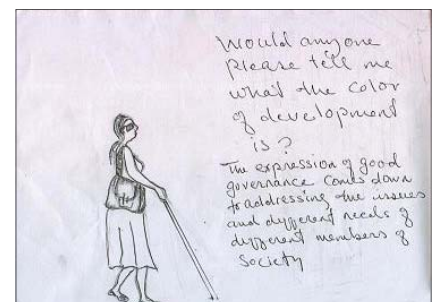 Would anyone
please tell me
what the color
of development
is?
The expression of good
governance comes down
to addressing the issues
and different needs of
different members of
society